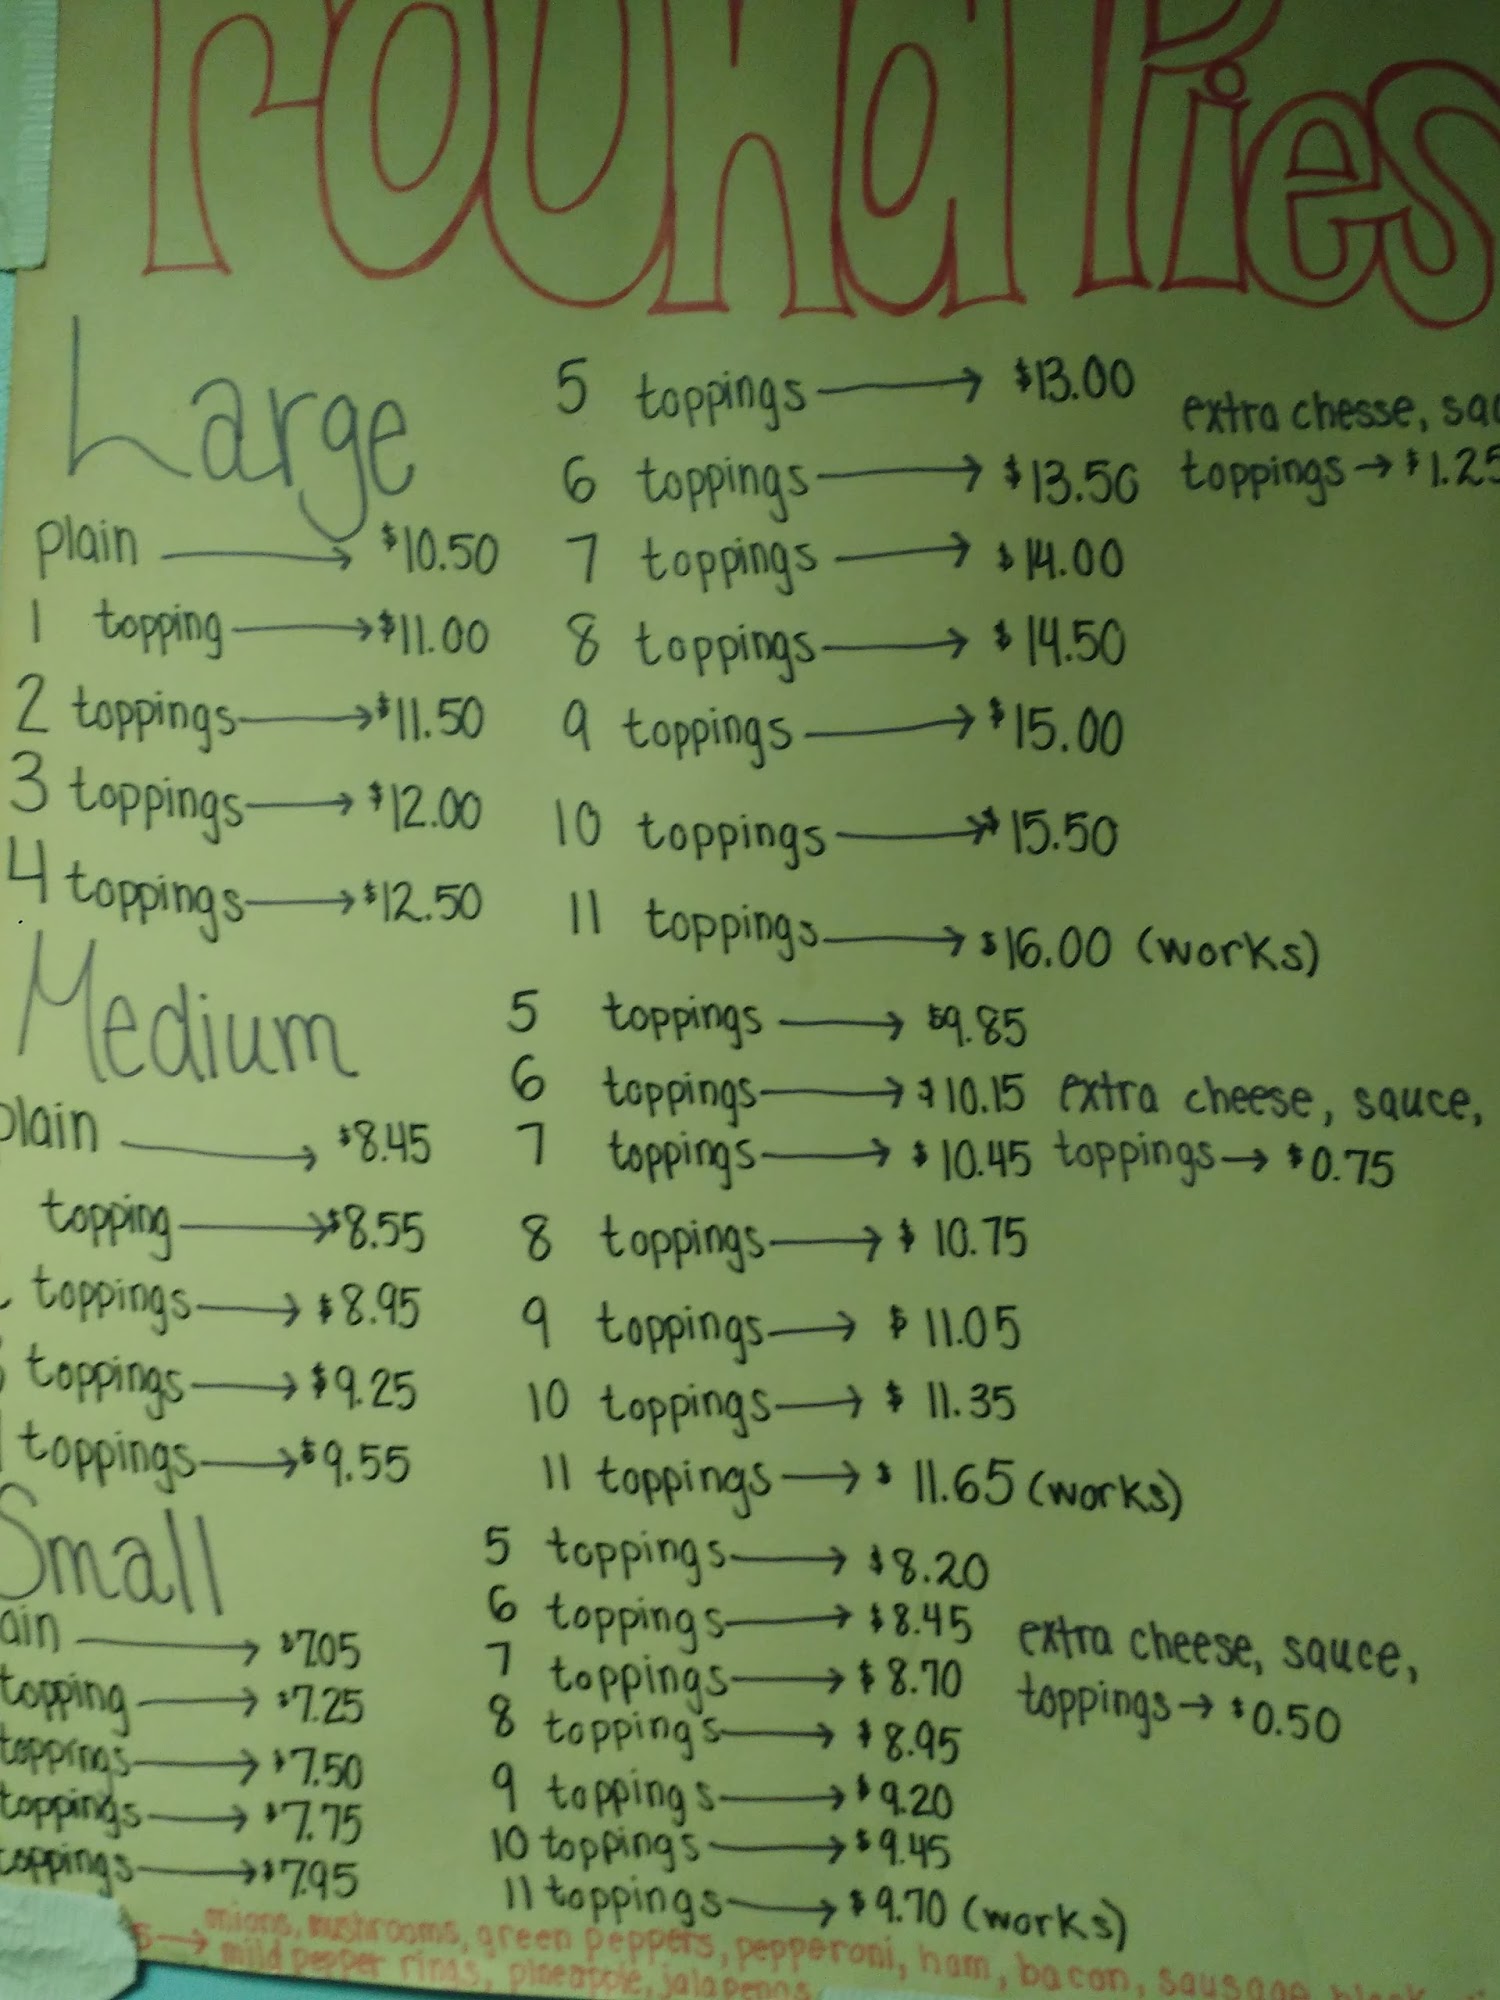 round Pies
Large
plain → $10.50
1 topping → $11.00
2 toppings → $11.50
3 toppings → $12.00
4 toppings → $12.50
5 toppings → $13.00
6 toppings → $13.50
7 toppings → $14.00
8 toppings → $14.50
9 toppings → $15.00
10 toppings → $15.50
11 toppings → $16.00 (works)
extra chesse, sau
toppings → $1.25
Medium
plain → $8.45
topping → $8.55
toppings → $8.95
toppings → $9.25
toppings → $9.55
5 toppings → $9.85
6 toppings → $10.15
7 toppings → $10.45
8 toppings → $10.75
9 toppings → $11.05
10 toppings → $11.35
11 toppings → $11.65 (works)
extra cheese, sauce,
toppings → $0.75
Small
ain → $7.05
topping → $7.25
toppings → $7.50
toppings → $7.75
toppings → $7.95
5 toppings → $8.20
6 toppings → $8.45
7 toppings → $8.70
8 toppings → $8.95
9 toppings → $9.20
10 toppings → $9.45
11 toppings → $9.70 (works)
extra cheese, sauce,
toppings → $0.50
s → onions, mushrooms, green peppers, pepperoni, ham, bacon, sausage,
mild pepper rings, pineapple, jalapenos